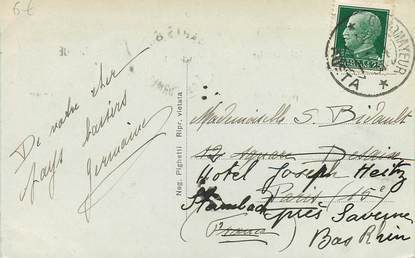 6€
De notre cher
pays baisers
Germaine
Neg. Pighetti - Ripr. vietata
Mademoiselle S. Bidault
12, square Desaix
Hotel Joseph Heitz
Paris (15e)
Stambach près Saverne
(France)
Bas Rhin